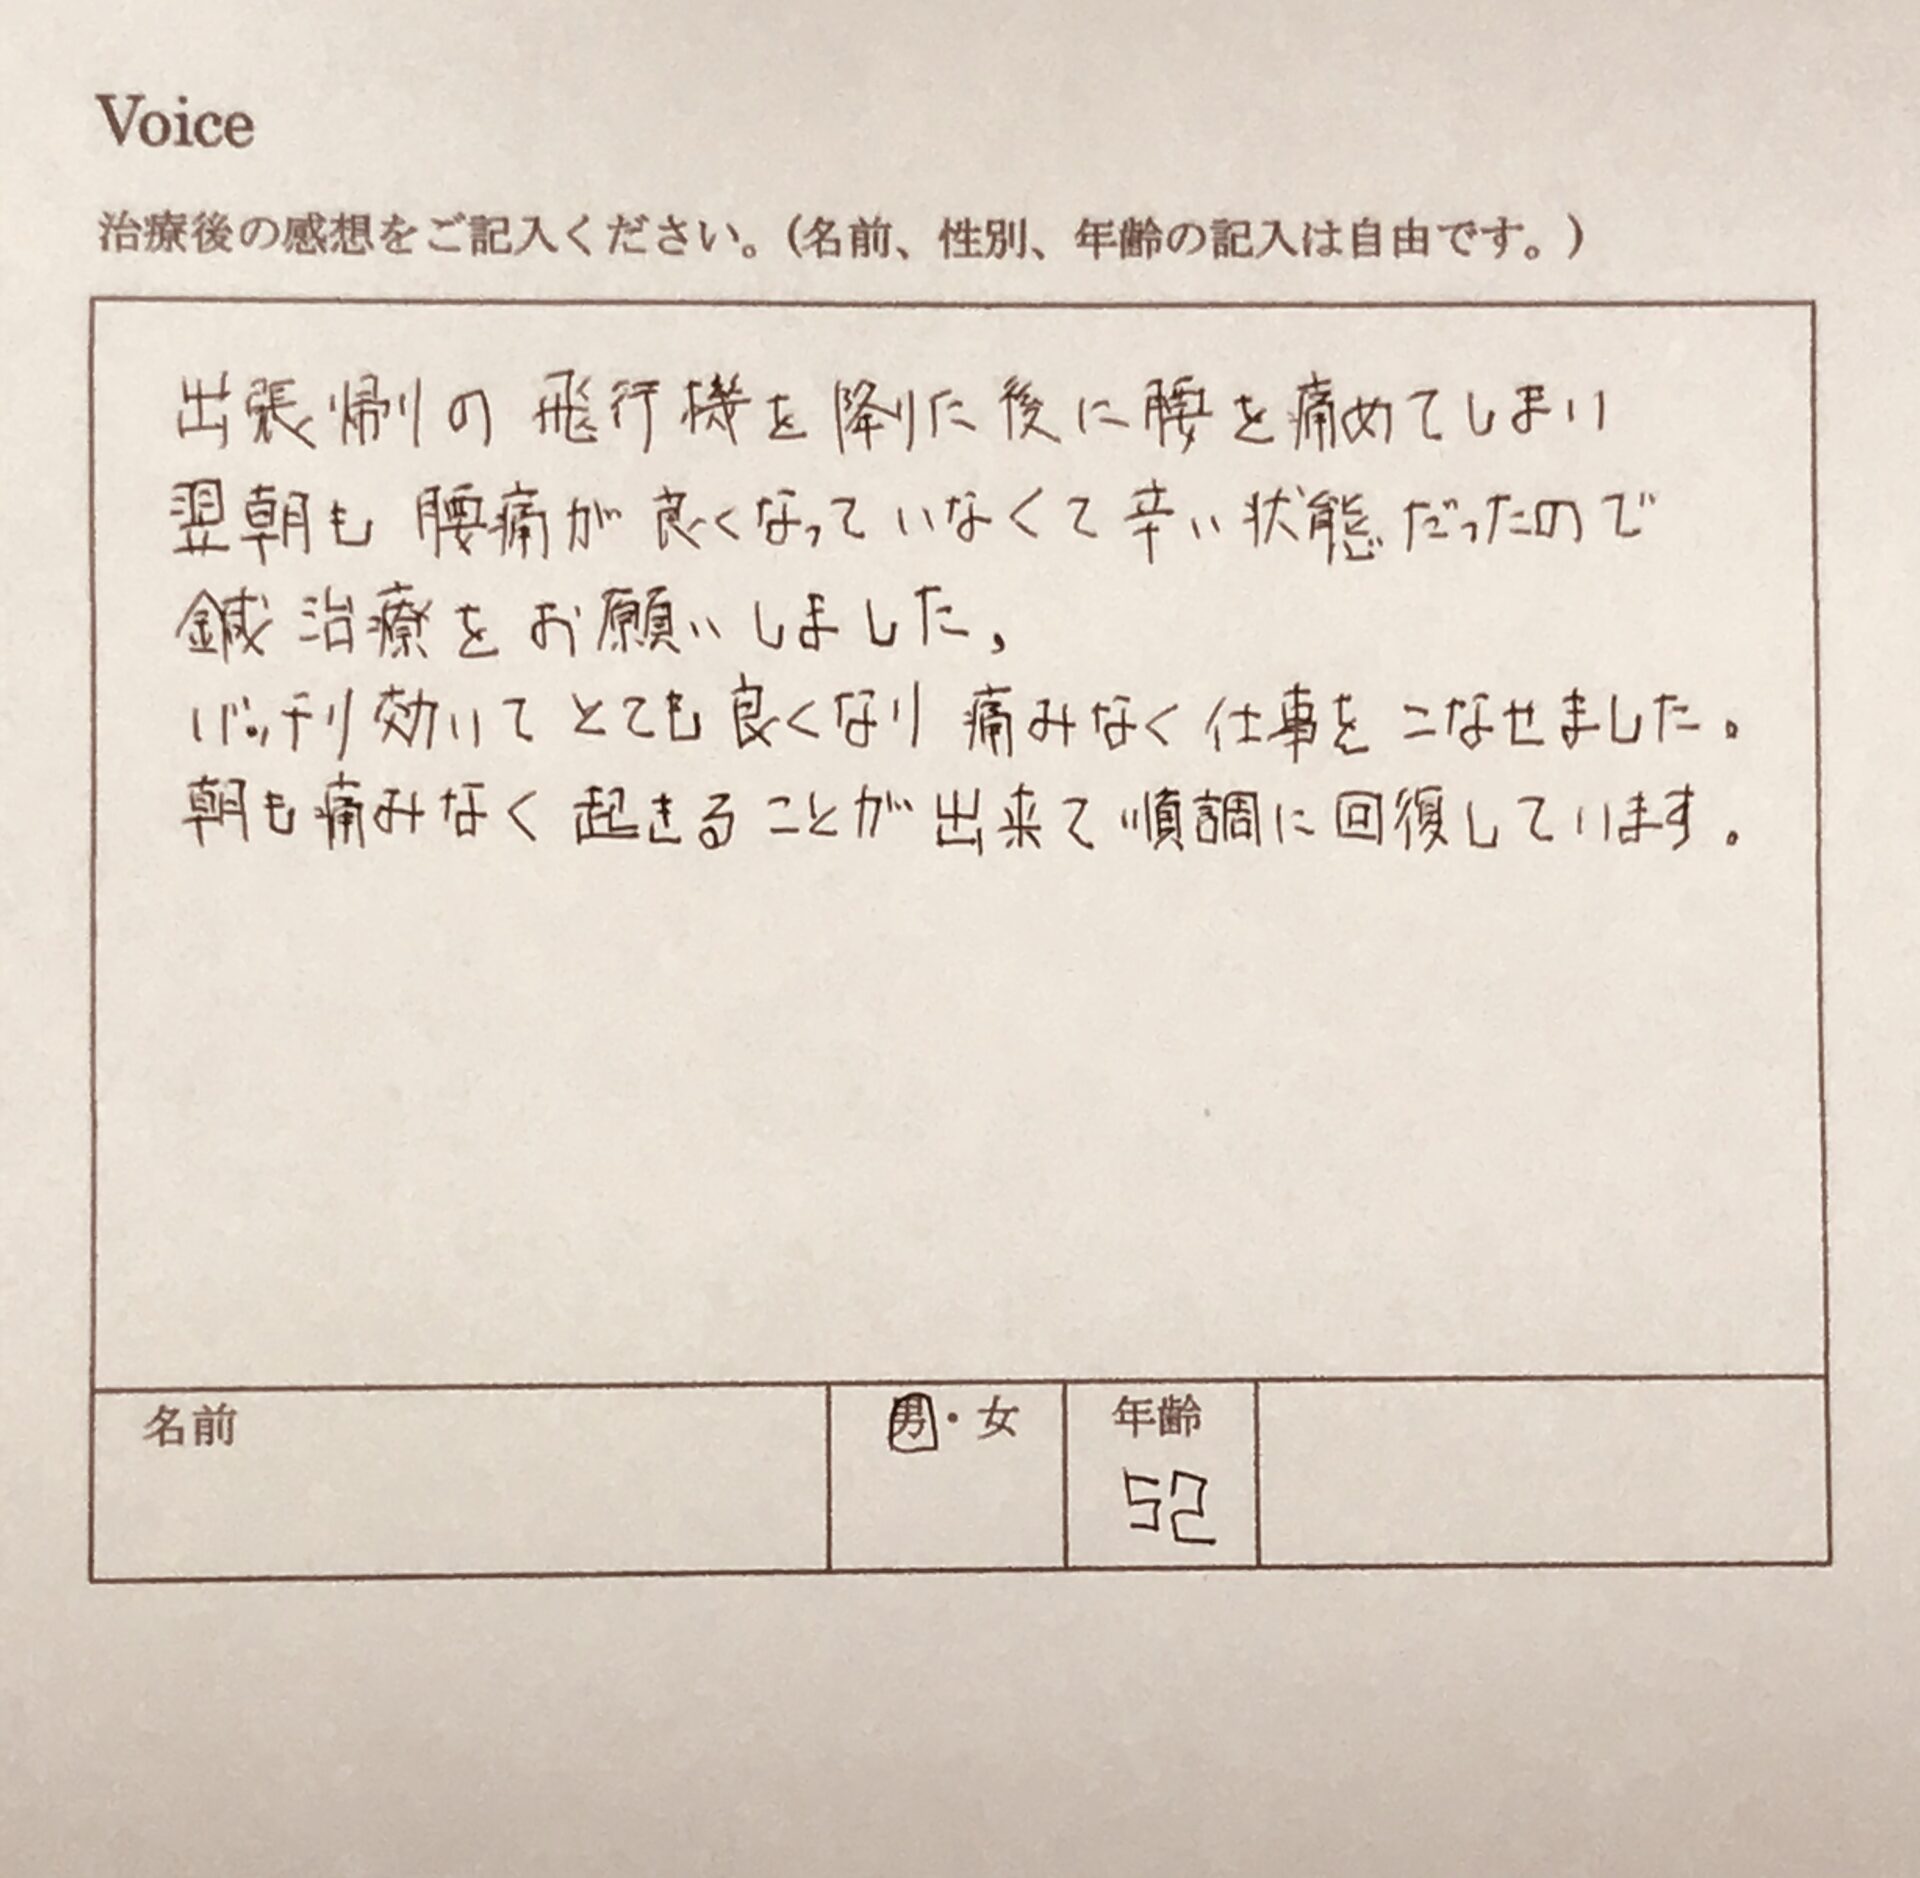 Voice
治療後の感想をご記入ください。(名前、性別、年齢の記入は自由です。)
出張帰りの飛行機を降りた後に腰を痛めてしまい
翌朝も腰痛が良くなっていなくて辛い状態だったので
鍼治療をお願いしました,
バッチリ効いてとても良くなり痛みなく仕事をこなせました。
朝も痛みなく起きることが出来て順調に回復しています。
名前 男・女 年齢
52